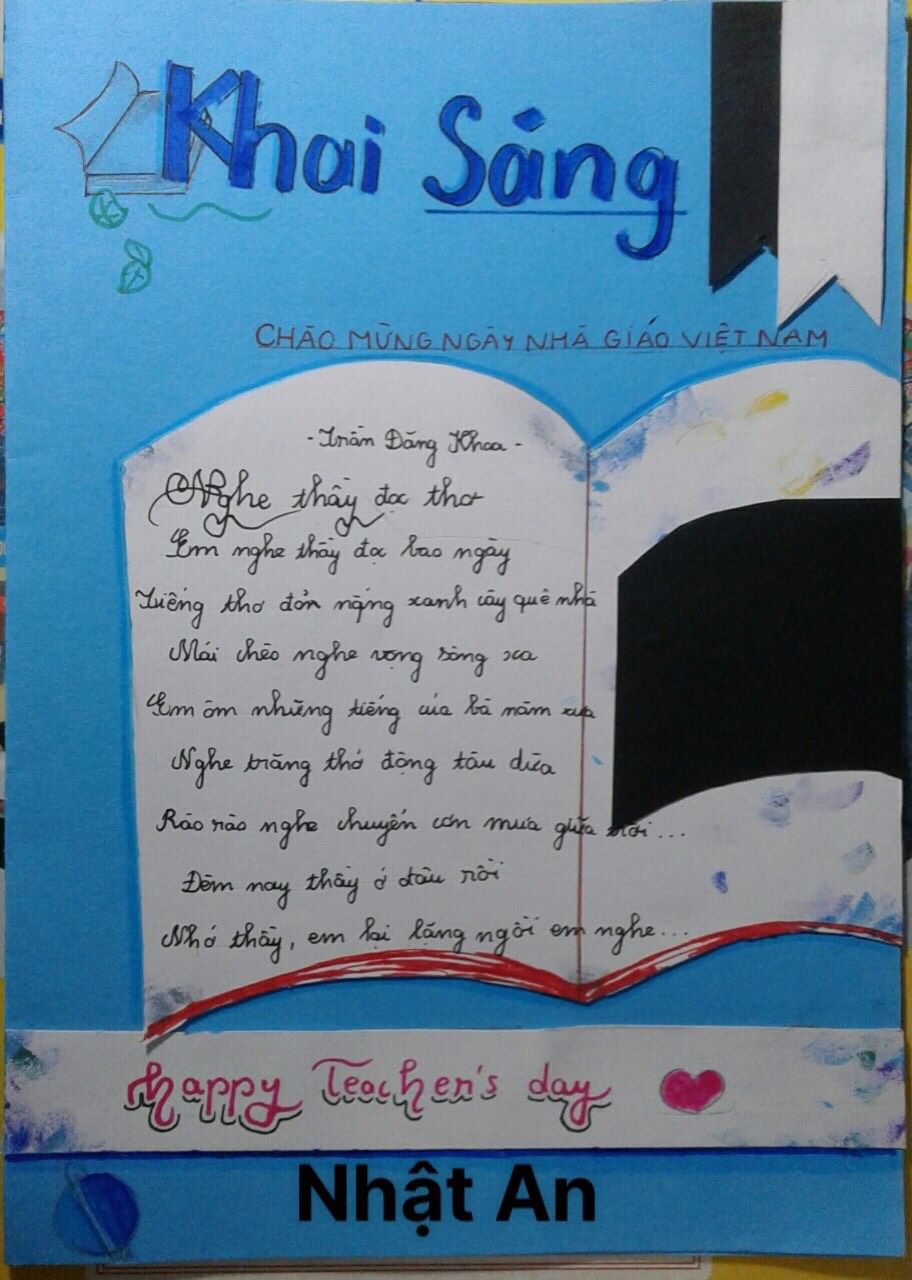 Khai Sáng
CHÀO MỪNG NGÀY NHÀ GIÁO VIỆT NAM
- Trần Đăng Khoa -
Nghe thầy đọc thơ
Em nghe thầy đọc bao ngày
Tiếng thơ đỏ nặng xanh cây quê nhà
Mái chèo nghe vọng sông xa
Em âm những tiếng của bà năm xưa
Nghe trăng thở động tàu dừa
Rào rào nghe chuyển cơn mưa giữa trời...
Đêm nay thầy ở đâu rồi
Nhớ thầy, em lại lặng ngồi em nghe...
Happy Teacher's day
Nhật An